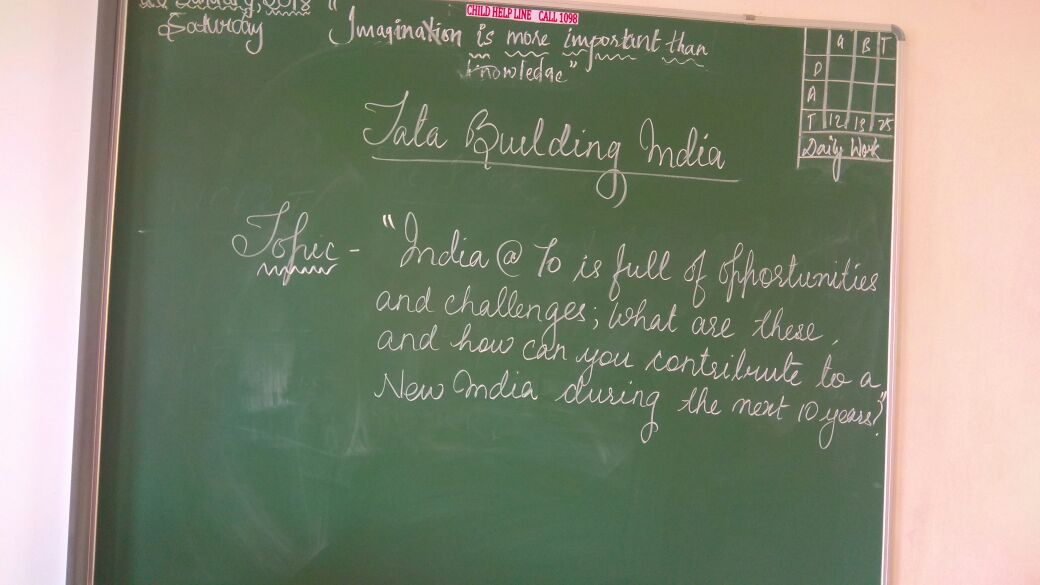 CHILD HELP LINE CALL 1098
2018
Saturday
"Imagination is more important than
knowledge"
G B T
D
A
T 12 13 25
Daily Work
Tata Building India
Topic - "India @ 70 is full of opportunities
and challenges; What are these,
and how can you contribute to a
New India during the next 10 years?"